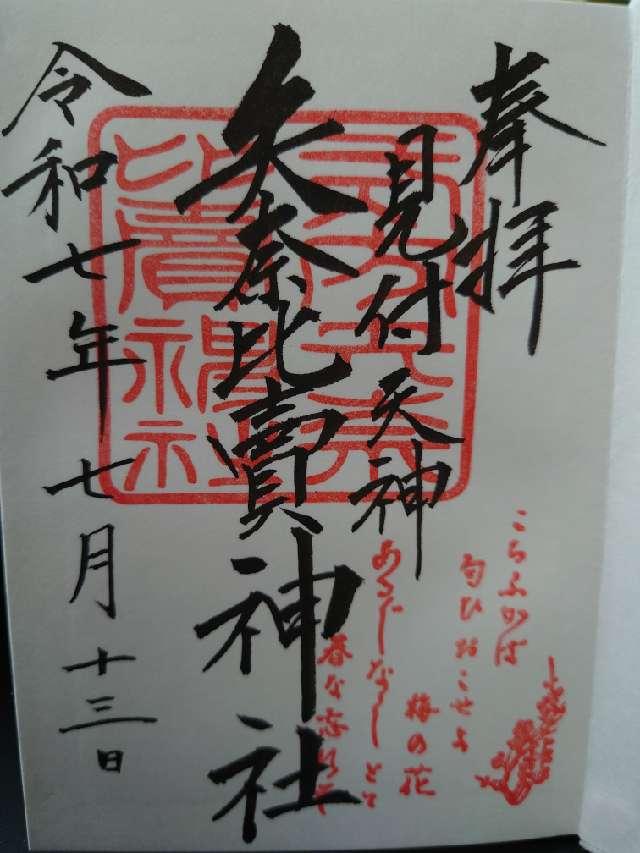 奉拝
見付天神
矢奈比賣神社
令和七年七月十三日
こちふかば
匂ひおこせよ
梅の花
あるじなしとて
春な忘れそ